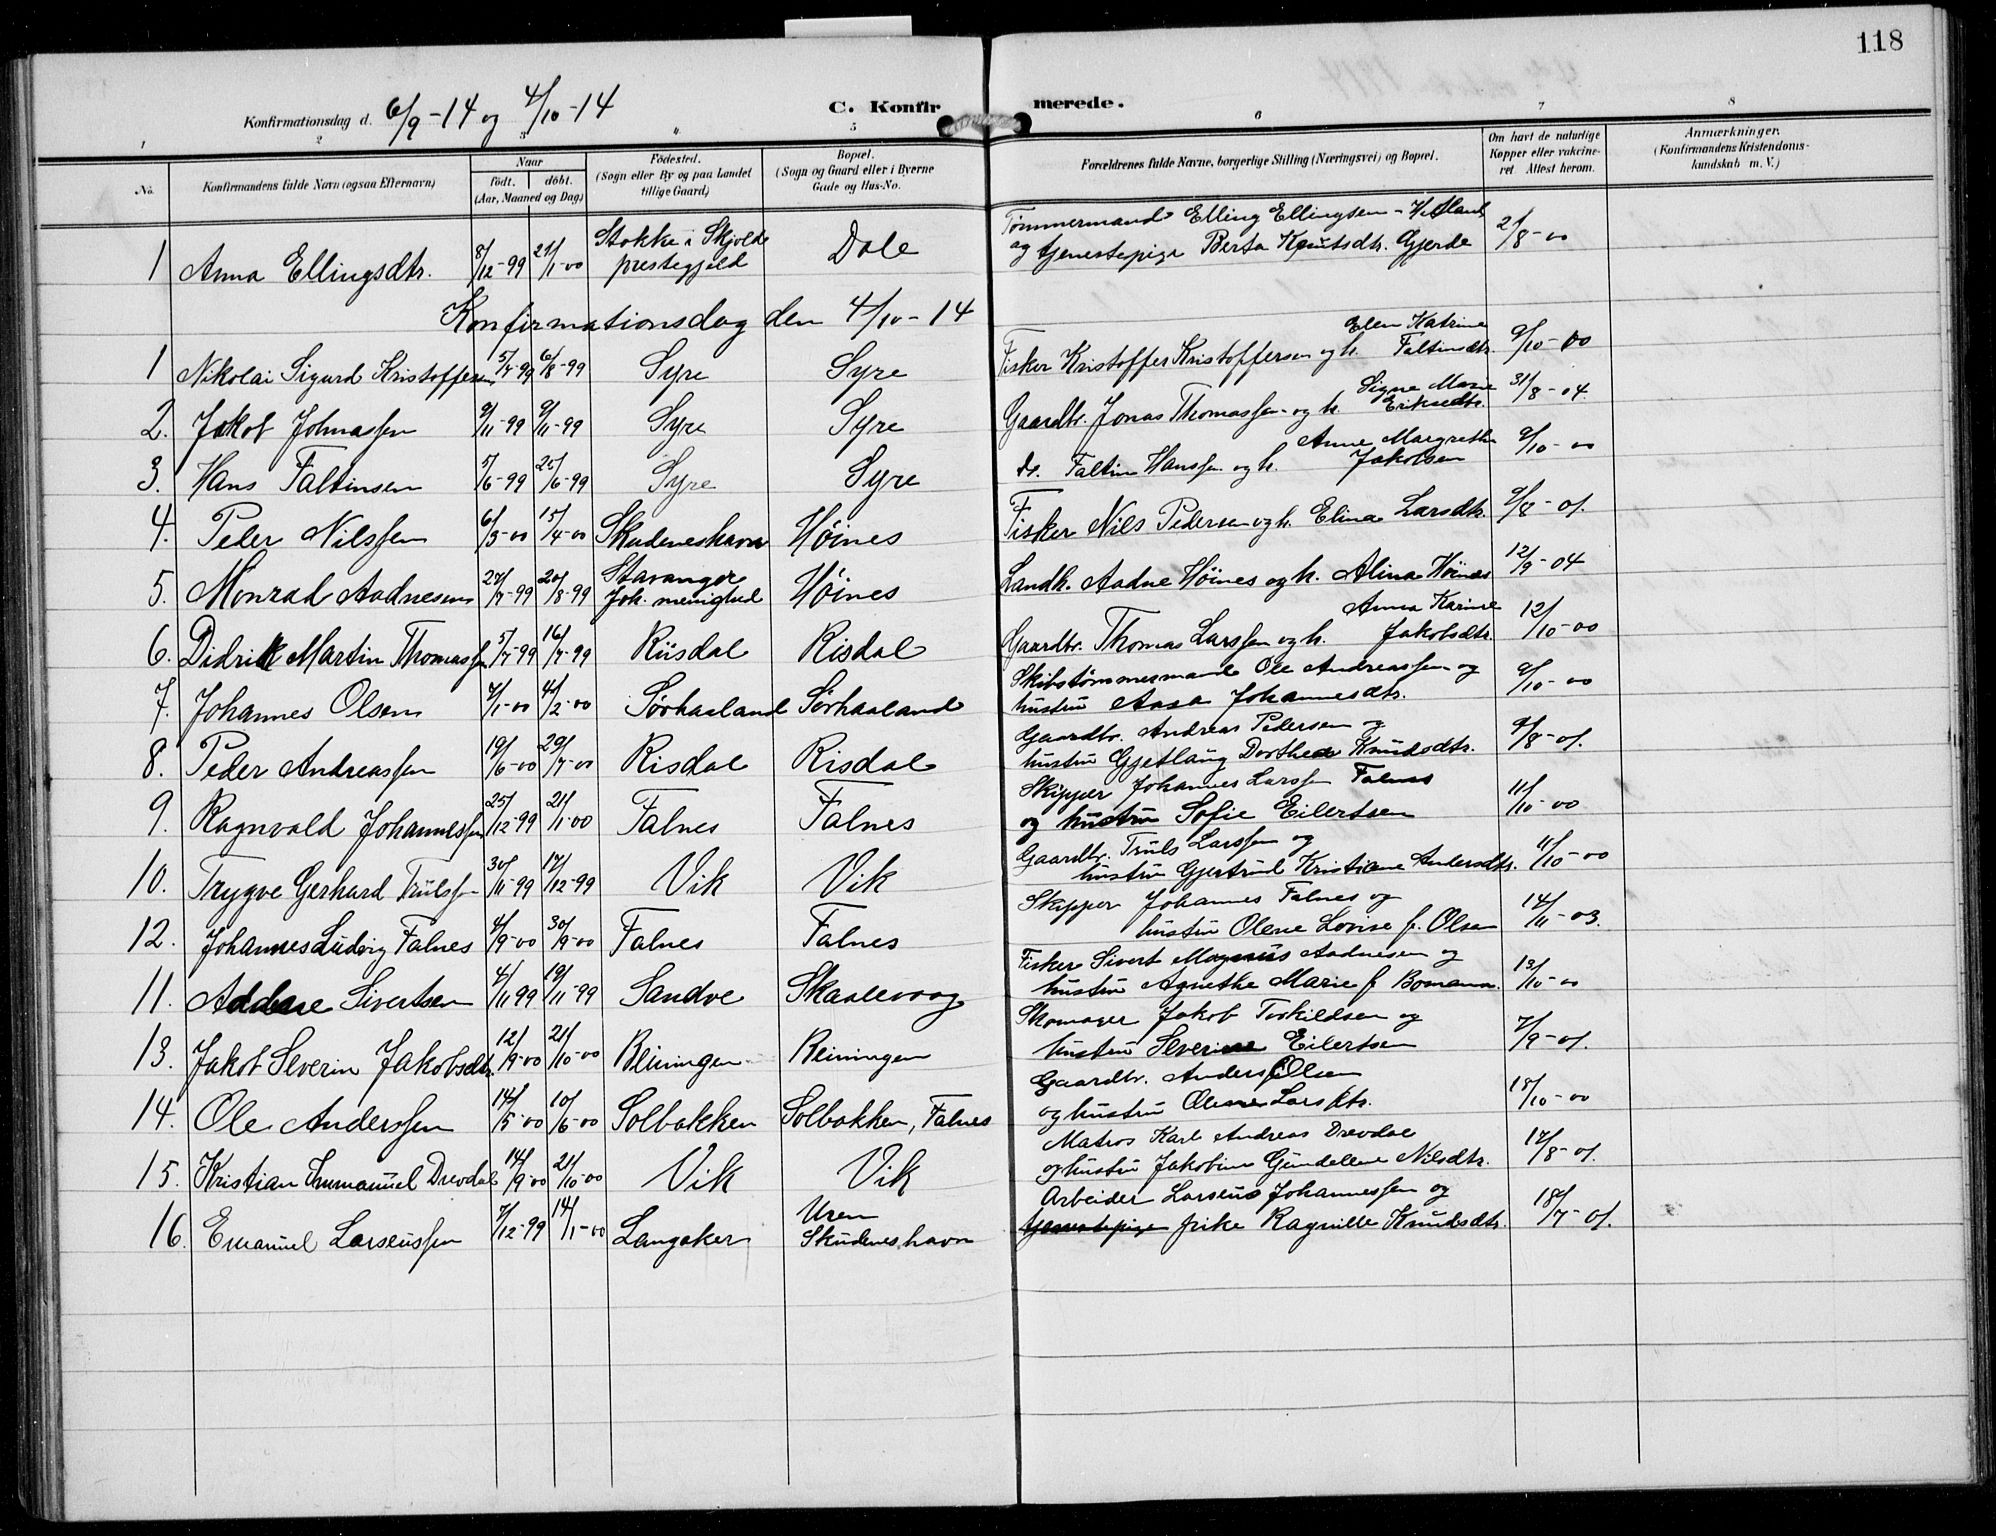 118
Konfirmationsdag d. 6/9-14 og 4/10-14
C. Konfirmerede.
1 2 3 4 5 6 7 8
No. Konfirmandens fulde Navn (ogsaa Efternavn.) Naar födt. döbt. (Aar, Maaned og Dag.) Födested. (Sogn eller By og paa Landet tillige Gaard.) Bopæl. (Sogn og Gaard eller i Byerne Gade og Hus-No. Forældrenes fulde Navne, borgerlige Stilling (Næringsvei) og Bopæl. Om havt de naturlige Kopper eller vakcineret. Attest herom. Anmærkninger. (Konfirmandens Kristendomskundskab m. V.)
1 Anna Ellingsdtr. 8/12-99 21/1-00 Stokke i Skjold prestegjeld Dale Tømmermand Elling Ellingsen og tjenestepige Berta Knutsdtr. Gjerde 2/8-00
Konfirmationsdag den 4/10-14
1 Nikolai Sigurd Kristoffersen 5/7-99 6/8-99 Syre Syre Fisker Kristoffer Kristoffersen og h. Elen Katrine Faltinsdtr. 9/10-00
2. Jakob Johnassen 9/11-99 9/11-99 Syre Syre Gaardbr. Jonas Thomassen og h. Signe Marie Eriksdtr. 31/8-04
3. Hans Faltinsen 5/6-99 25/6-99 Syre Syre do. Faltin Hanssen og h. Anne Margrethe Jakobsen 9/10-00
4. Peder Nilssen 6/3-00 15/4-00 Skudeneshavn Høines Fisker Nils Pedersen og h. Elina Larsdtr. 9/8-01.
5. Monrad Aadnesen 27/7-99 20/8-99 Stavanger Joh. menighed Høines Landh. Aadne Høines og h. Alina Høines 12/9-04
6. Didrik Martin Thomassen 5/7-99 16/7-99 Riisdal Risdal Gaardbr. Thomas Larssen og h. Anna Karine Jakobsdtr. 12/10-00
7. Johannes Olsen 7/1-00 4/2-00 Sørhaaland Sørhaaland Skibstømmermand Ole Andreassen og hustru Aasa Johannesdtr. 9/10-00
8. Peder Andreassen 19/6-00 29/7-00 Risdal Risdal Gaardbr. Andreas Pedersen og hustru Gjetlaug Dorthea Knudsdtr. 9/8-01.
9. Ragnvald Johannessen 25/12-99 21/1-00 Falnes Falnes Skipper Johannes Larssen Falnes og hustru Sofie Eilertsen 11/10-00
10. Trygve Gerhard Trulssen 30/11-99 17/12-99 Vik Vik Gaardbr. Truls Larssen og hustru Gjertrud Kristiane Andersdtr. 11/10-00
12. Johannes Ludvig Falnes 4/9-00 30/9-00 Falnes Falnes Skipper Johannes Falnes og hustru Olene Lovise f. Olsen 14/11-03.
11. Sivertsen 4/11 99 19/11-99 Sandve Skaalevaag Fisker Sivert Magnus Aadnesen og hustru Agnethe Marie f. Bomann. 13/10-00
13. Jakob Severin Jakobsdtr. 12/9-00 21/10-00 Reiningen Reiningen Skomager Jakob Torkildsen og hustru Severine Eilertsen 7/9-01.
14. Ole Anderssen 14/5-00 10/6-00 Solbakken Solbakken, Falnes Gaardbr. Anders Olsen og hustru Olene Larsdtr. 18/10-00
15. Kristian Immanuel Drevdal 14/9-00 21/10-00 Vik Vik Matros Karl Andreas Drevdal og hustru Jakobine Gundelene Nilsdtr. 17/8-01.
16. Emanuel Larseussen 7/12-99 14/1-00 Langaker Uren Skudeneshavn Arbeider Larseus Johannessen og tjenestepige pike Ragnille Knudsdtr. 18/7-01.